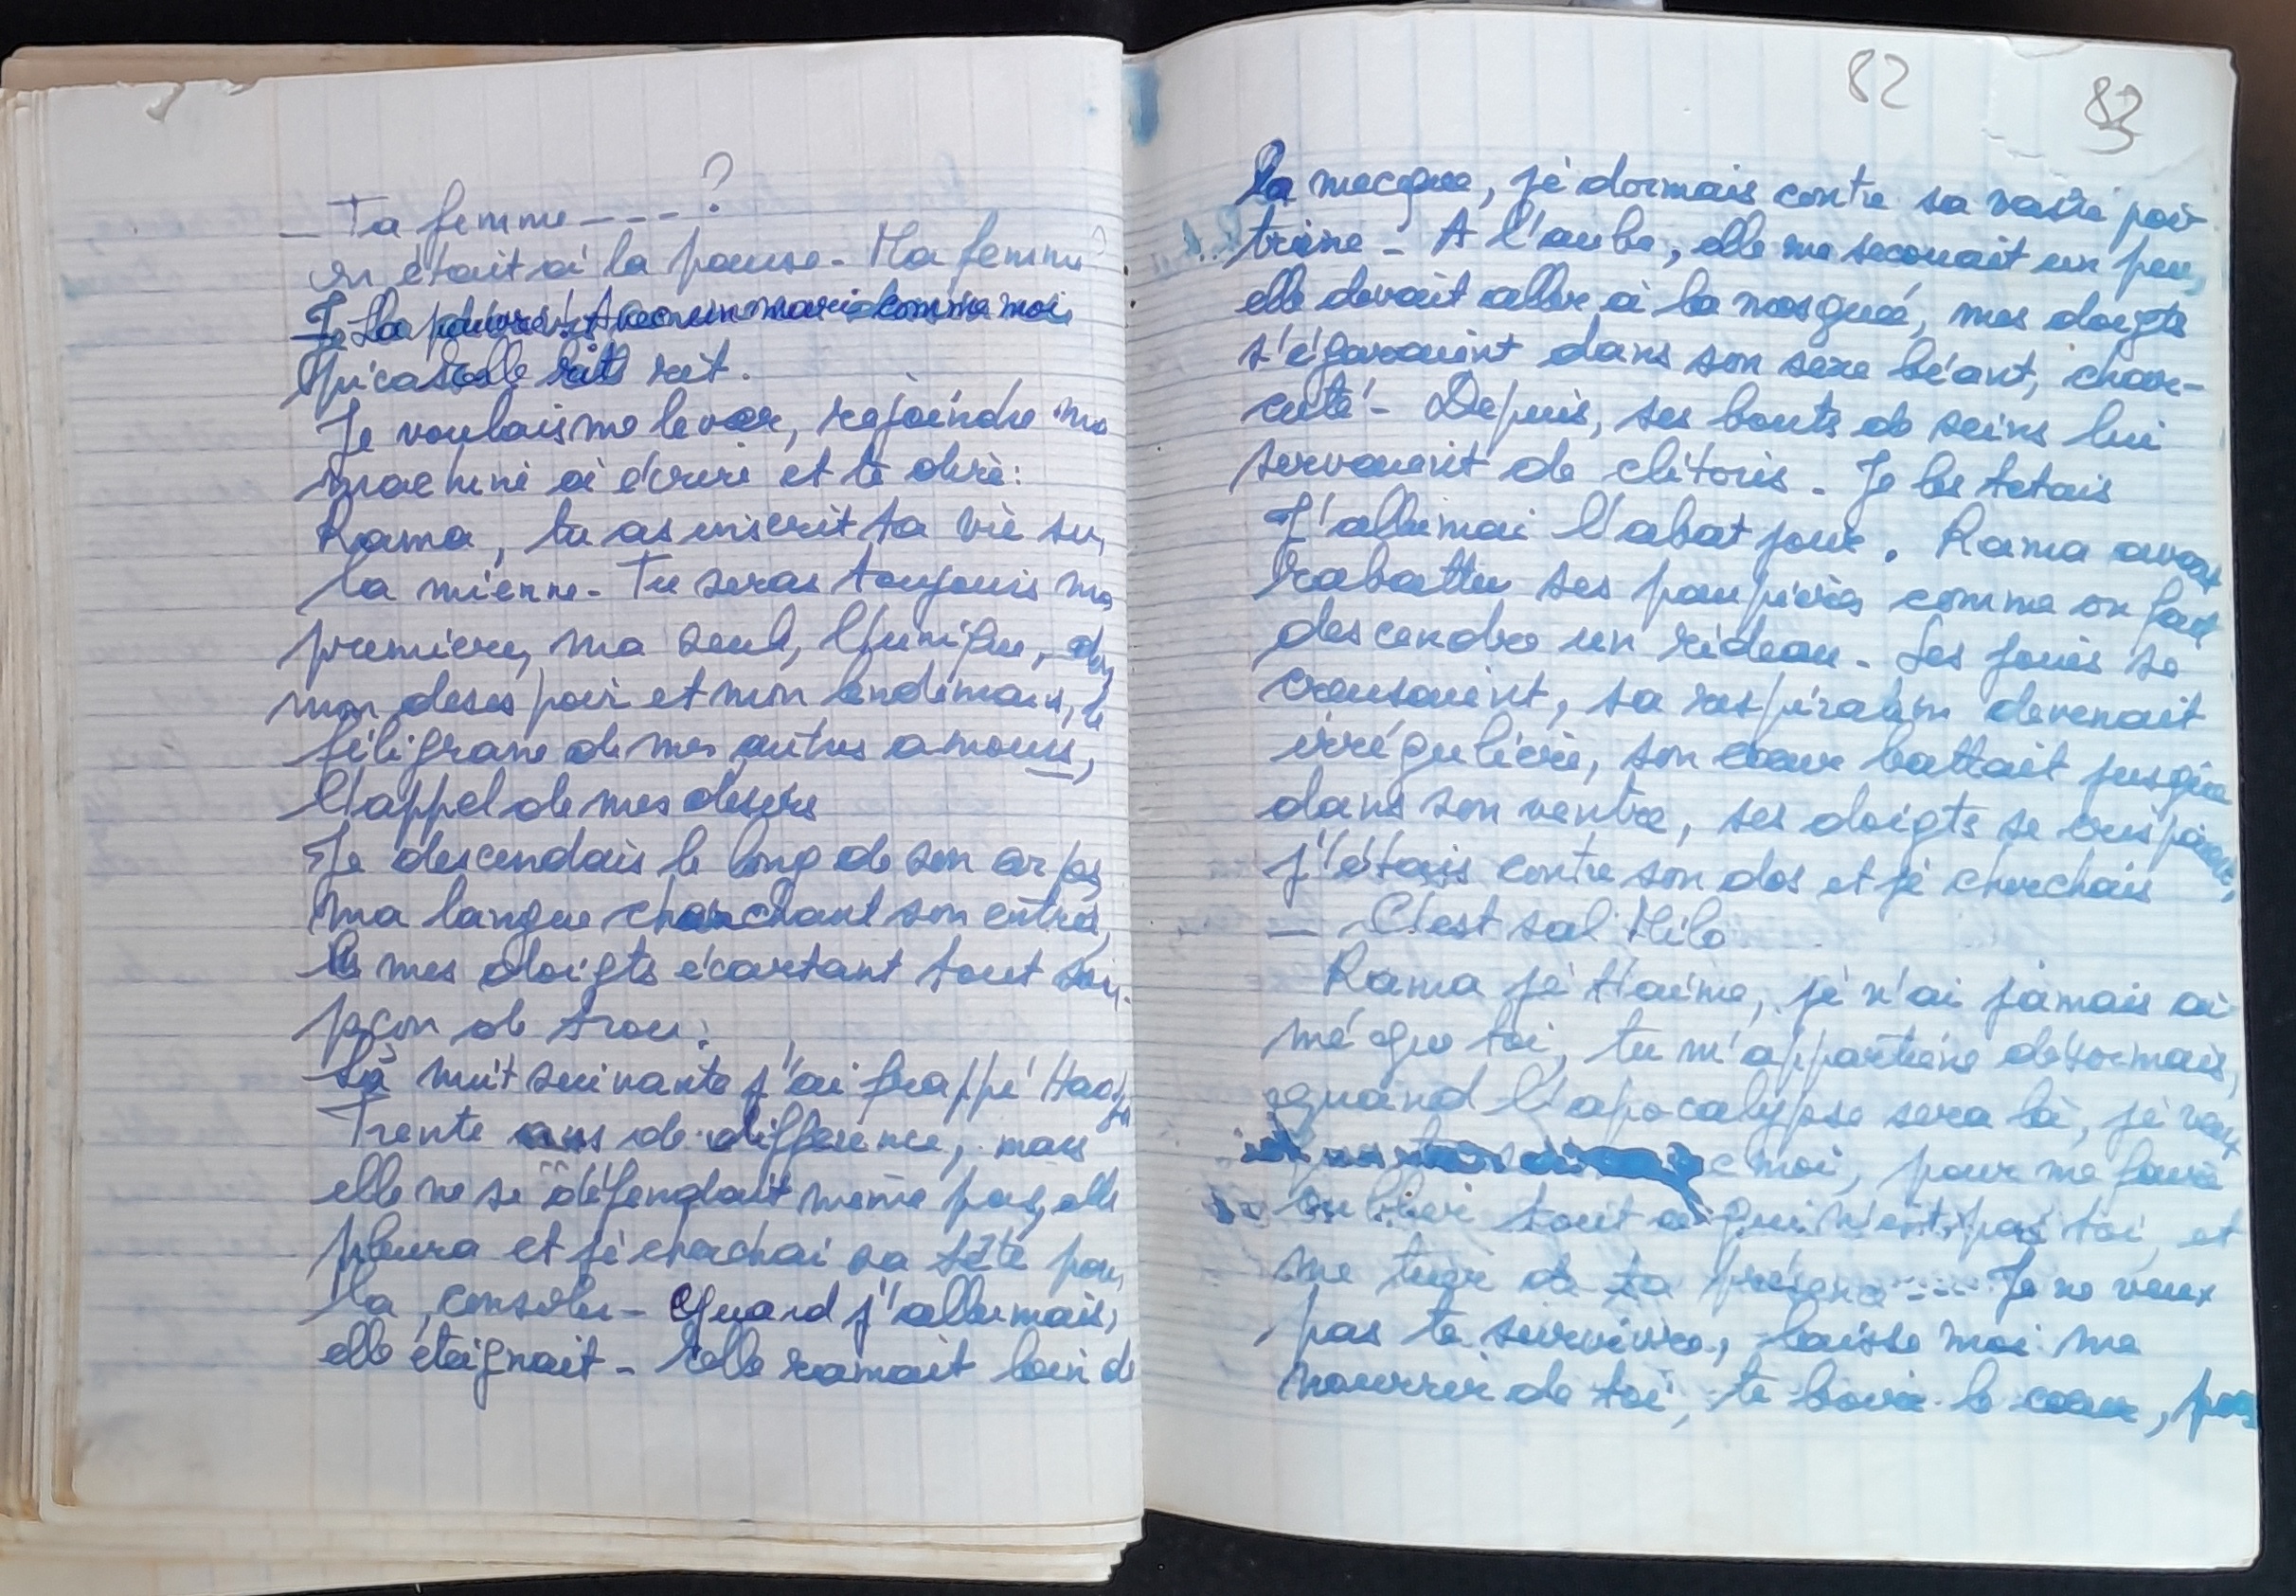 _ Ta femme ---- ?
on était à la pause - Ma femme ?
La pauvre ! Avec un mari comme moi
rit.
Je voulais me lever, rejoindre ma
machine à écrire et te dire :
Rama, tu as inscrit ta vie sur
la mienne - Tu seras toujours ma
première, ma seul, l'unique,
mon desespoir et mon lendemain, le
filigrane de mes autres amours,
l'appel de mes desirs
Je descendais le long de son corps
ma langue cherchant son entrée,
mes doigts écartant tout sou-
pçon de trou.
La nuit suivante j'ai frappé
Trente ans de différence, mais
elle ne se défendait même pas, elle
pleura et je cherchai sa tête pour
la consoler - Quand j'allumais,
elle éteignait - elle ramait loin de
82 83
la mecque, je dormais contre sa vaste poi-
trine - A l'aube, elle me secouait un peu,
elle devait aller à la mosqueé, mes doigts
s'égaraient dans son sexe béant, char-
cuté - Depuis, ses bouts de seins lui
servaient de clitoris - Je les tetais
J'allumai l'abat jour. Rama avait
rabattu ses paupières comme on fait
descendre un rideau - Ses joues se
creusaient, sa respiration devenait
irrégulière, son cœur battait jusque
dans son ventre, ses doigts se crispaient,
j'étais contre son dos et je cherchais
_ C'est sal Milo
Rama je t'aime, je n'ai jamais ai-
mé que toi, tu m'appartiens désormais,
quand l'apocalypse sera là, je veux
moi, pour me faire
oublier tout ce qui n'est pas toi, et
me tuer de ta présence ---- Je ne veux
pas te survivre, laisse moi me
nourrir de toi, te boire le cœur,